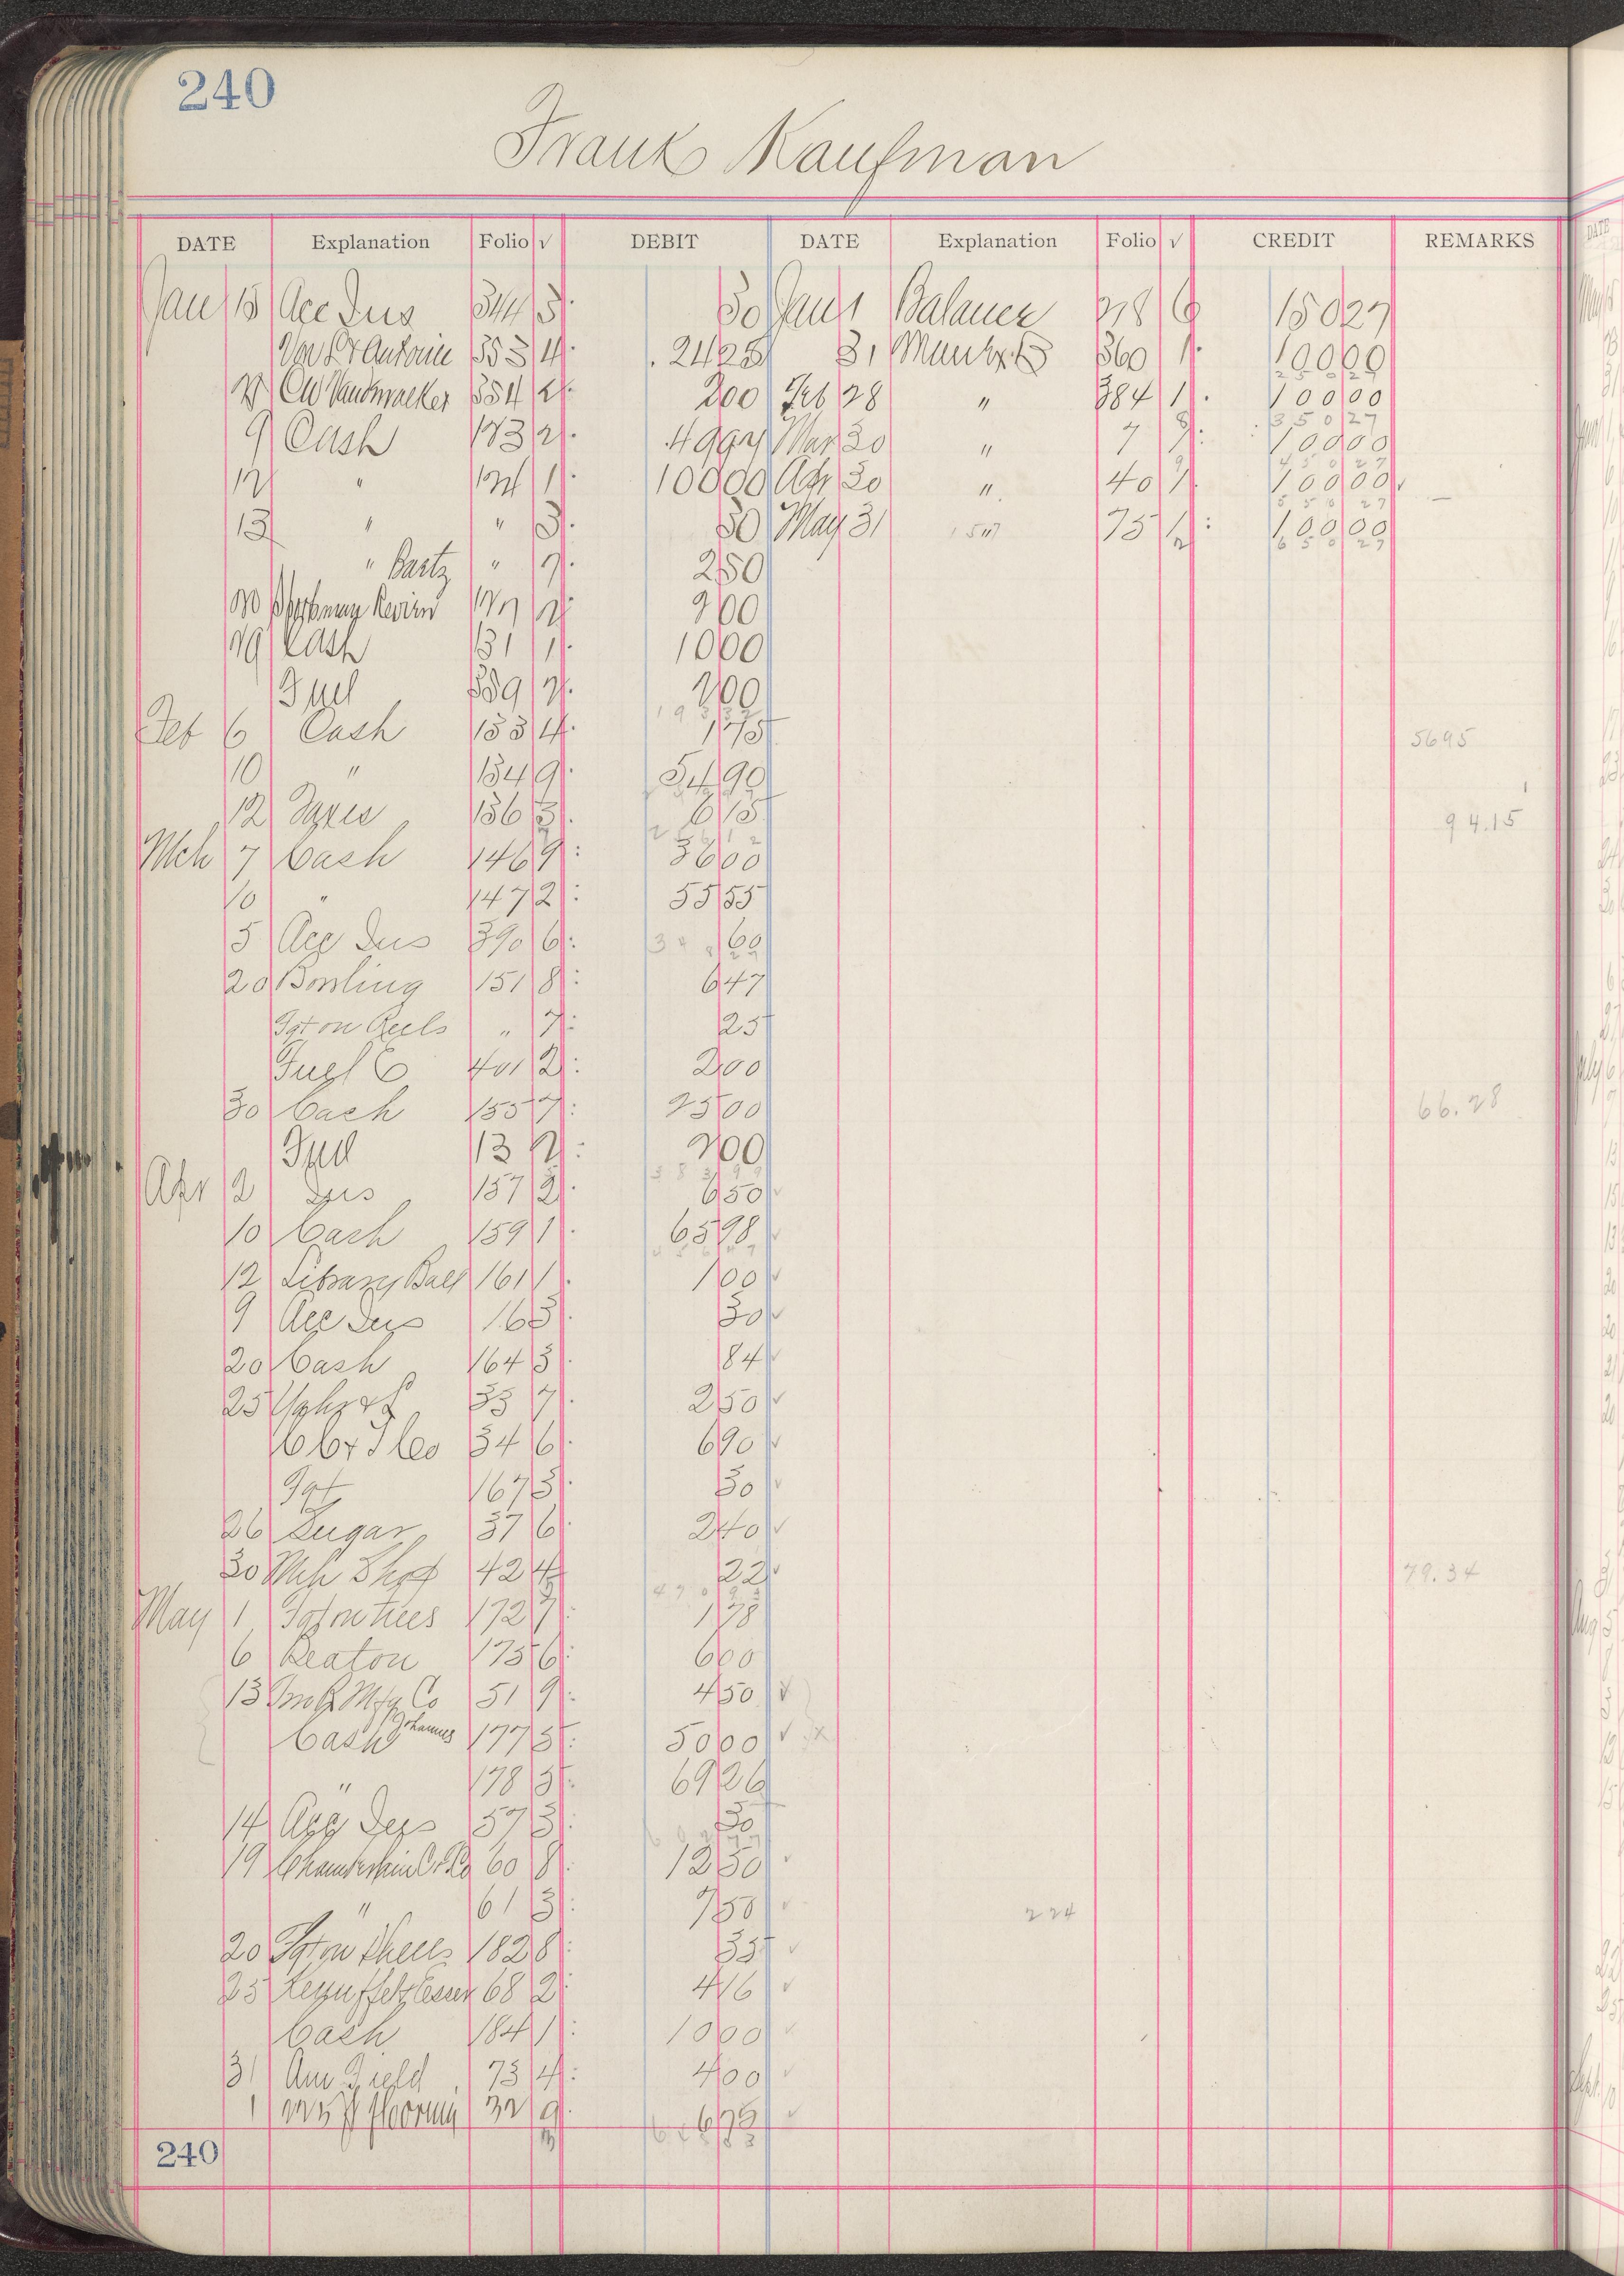 240
Frank Kaufman
DATE Explanation Folio √ DEBIT DATE Explanation Folio √ CREDIT REMARKS
Jan 15 Acc Ins 344 3 30 Jan 1 Balance 278 6 150 27
Von & St Antoine 353 4 24 25 31 360 1 100 00
CW 354 2 2 00 Feb 28 " 384 1 100 00
350 27
9 Cash 123 2 49 97 Mar 30 " 7 100 00
450 27
12 " 124 1 100 00 Apr 30 " 40 100 00
550 27
13 " " 3 50 May 31 75 100 00
650 27
" Bartz " 7 2 50
20 Review 127 2 2 00
29 Cash 131 1 10 00
Fuel 359 2 2 00
Feb 6 Cash 133 4 1 75
5695
10 " 134 9 54 90
12 Taxes 136 3 6 15
94.15
Mch 7 Cash 146 9 36 00
10 " 147 2 55 55
5 Acc Ins 390 6 60
20 Bowling 151 8 6 47
Fgt on Reels " 7 25
Fuel 401 2 2 00
30 Cash 155 7 25 00
66.28
Fuel 13 2 2 00
Apr 2 Ins 157 2 6 50
10 Cash 159 1 65 98
12 Library Ball 161 1 1 00
9 Acc Ins 163 30
20 Cash 164 3 84
25 33 7 2 50
34 6 6 90
Fgt 167 3 30
26 Sugar 37 6 2 40
30 Mch Shop 42 4 22
79.34
May 1 Fgt on trees 172 7 1 78
6 Beaton 175 6 6 00
13 Mfg Co 51 9 4 50
Cash Johannes 177 5 50 00
" 178 5 69 26
14 Acc Ins 57 3 30
19 Chamberlain 60 8 12 50
" 61 3 7 50
224
20 Fgt on 182 8 35
25 Keuffel & Esser 68 2 4 16
Cash 184 1 10 00
31 Am Field 73 4 4 00
1 flooring 32 9 6 75
240